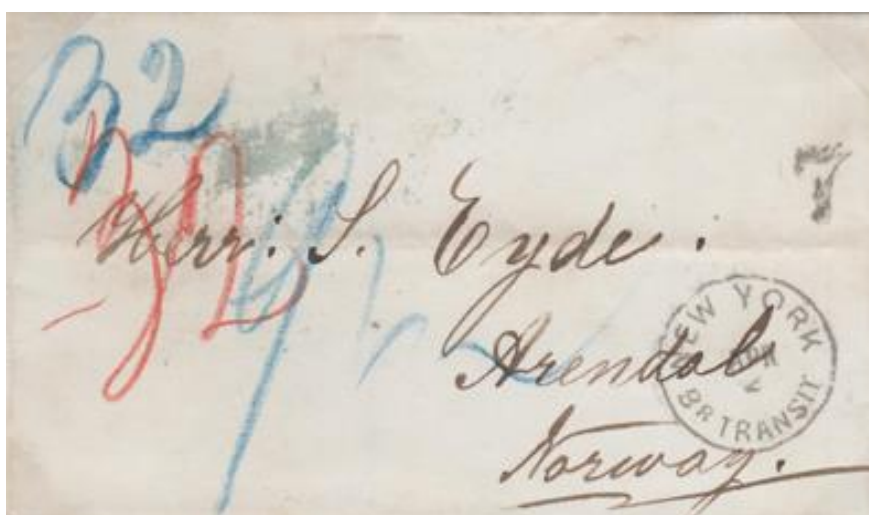 32
32
T
Herr: S. Eyde.
Arendal
Norway.
NEW YORK
APR
BR TRANSIT